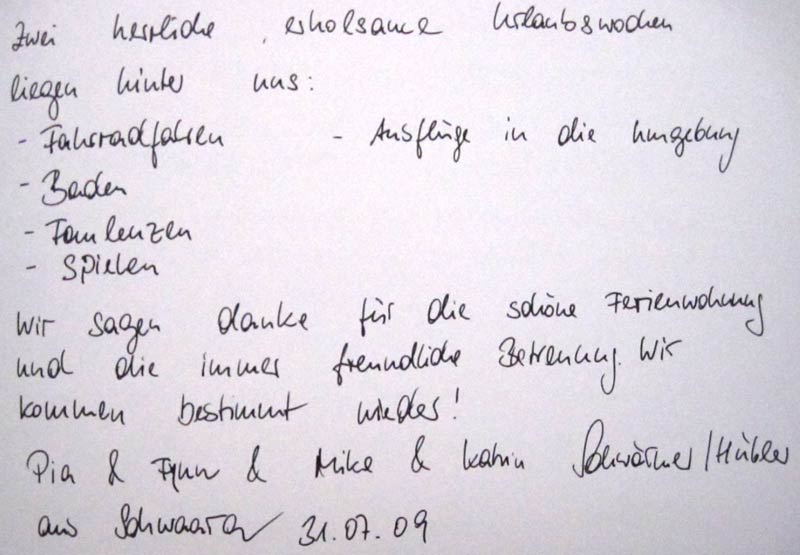 Zwei herrliche, erholsame Urlaubswochen
liegen hinter uns:
- Fahrradfahren - Ausflüge in die Umgebung
- Baden
- Faulenzen
- Spielen
Wir sagen danke für die schöne Ferienwohnung
und die immer freundliche Betreuung. Wir
kommen bestimmt wieder!
Pia & Fynn & Mike & Katrin
aus 31.07.09